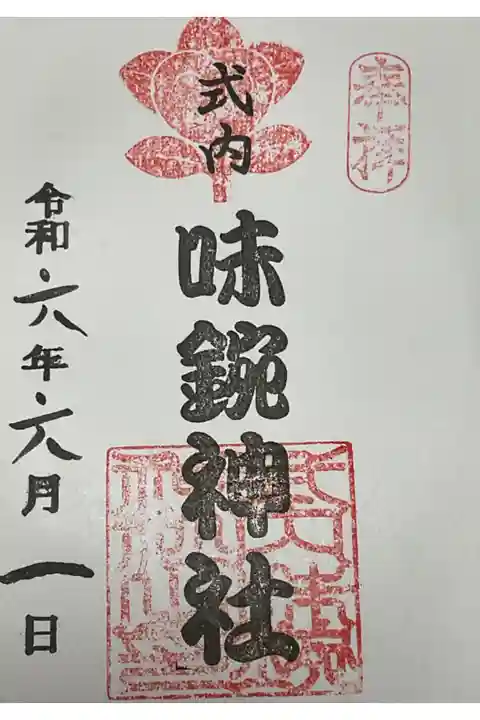 奉拝
式内
味鋺神社
令和六年六月一日